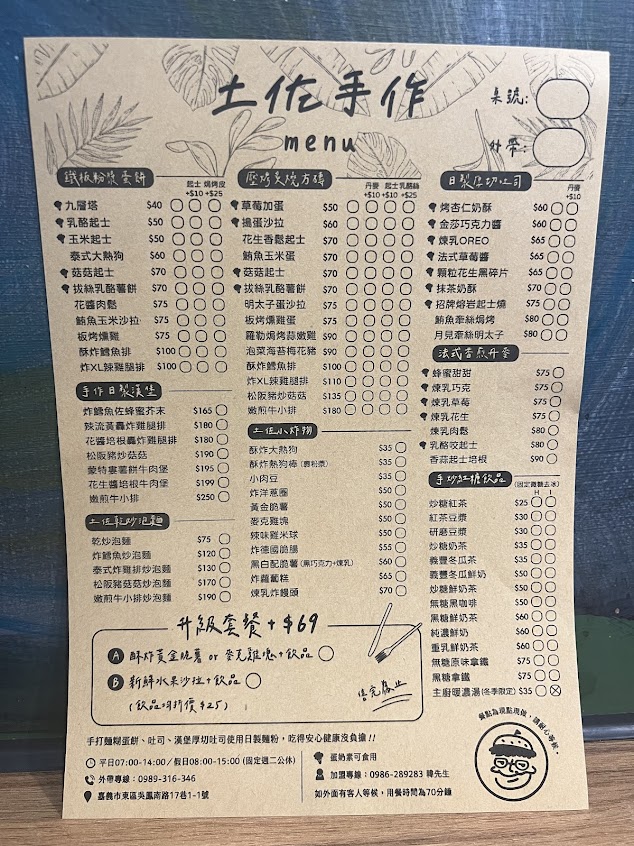 土佐手作
menu
桌號:
外帶:
鐵板粉漿蛋餅
起士 焗烤皮
+$10 +$25
九層塔 $40
乳酪起士 $50
玉米起士 $50
泰式大熱狗 $60
菇菇起士 $70
拔絲乳酪薯餅 $70
花醬肉鬆 $75
鮪魚玉米沙拉 $75
板烤燻雞 $75
酥炸鱈魚排 $100
炸XL辣雞腿排 $100
手作日製漢堡
炸鱈魚佐蜂蜜芥末 $165
辣流黃轟炸雞腿排 $180
花醬培根轟炸雞腿排 $180
松阪豬炒菇菇 $190
蒙特婁薯餅牛肉堡 $195
花生醬培根牛肉堡 $199
嫩煎牛小排 $250
土佐乾炒泡麵
乾炒泡麵 $75
炸鱈魚炒泡麵 $120
泰式炸雞排炒泡麵 $130
松阪豬菇菇炒泡麵 $170
嫩煎牛小排炒泡麵 $190
壓烤炙燒方磚
丹麥 起士 乳酪絲
+$10 +$10 +$25
草莓加蛋 $50
搗蛋沙拉 $60
花生香鬆起士 $70
鮪魚玉米蛋 $70
菇菇起士 $70
拔絲乳酪薯餅 $70
明太子蛋沙拉 $75
板烤燻雞蛋 $75
羅勒焗烤蒜嫩雞 $90
泡菜海苔梅花豬 $90
酥炸鱈魚排 $100
炸XL辣雞腿排 $110
松阪豬炒菇菇 $135
嫩煎牛小排 $180
土佐小炸物
酥炸大熱狗 $35
酥炸熱狗棒(裹粉漿) $35
小肉豆 $35
炸洋蔥圈 $50
黃金脆薯 $50
麥克雞塊 $50
辣味雞米球 $50
炸德國脆腸 $55
黑白配脆薯(黑巧克力+煉乳) $60
炸蘿蔔糕 $65
煉乳炸饅頭 $70
日製厚切吐司
丹麥
+$10
烤杏仁奶酥 $60
金莎巧克力醬 $60
煉乳OREO $65
法式草莓醬 $65
顆粒花生黑碎片 $65
抹茶奶酥 $70
招牌熔岩起士燒 $75
鮪魚牽絲焗烤 $80
月見牽絲明太子 $80
法式香煎丹麥
蜂蜜甜甜 $75
煉乳巧克 $75
煉乳草莓 $75
煉乳花生 $75
煉乳肉鬆 $80
乳酪咬起士 $80
香蒜起士培根 $90
手炒紅糖飲品 (固定微糖去冰)
H I
炒糖紅茶 $25
紅茶豆漿 $30
研磨豆漿 $30
炒糖奶茶 $35
義豐冬瓜茶 $35
義豐冬瓜鮮奶 $50
炒糖鮮奶茶 $50
無糖黑咖啡 $50
黑糖鮮奶茶 $60
純濃鮮奶 $60
重乳鮮奶茶 $60
無糖原味拿鐵 $75
黑糖拿鐵 $75
主廚暖濃湯(冬季限定) $35
升級套餐+$69
A 酥炸黃金脆薯 or 麥克雞塊+飲品
B 新鮮水果沙拉+飲品
(飲品均折價$25)
售完為止
餐點為現點現做,請耐心等候。
手打麵糊蛋餅、吐司、漢堡厚切吐司使用日製麵粉,吃得安心健康沒負擔!!
平日07:00-14:00/假日08:00-15:00 (固定週二公休)
外帶專線:0989-316-346
嘉義市東區吳鳳南路17巷1-1號
蛋奶素可食用
加盟專線:0986-289283 韓先生
如外面有客人等候,用餐時間為70分鐘